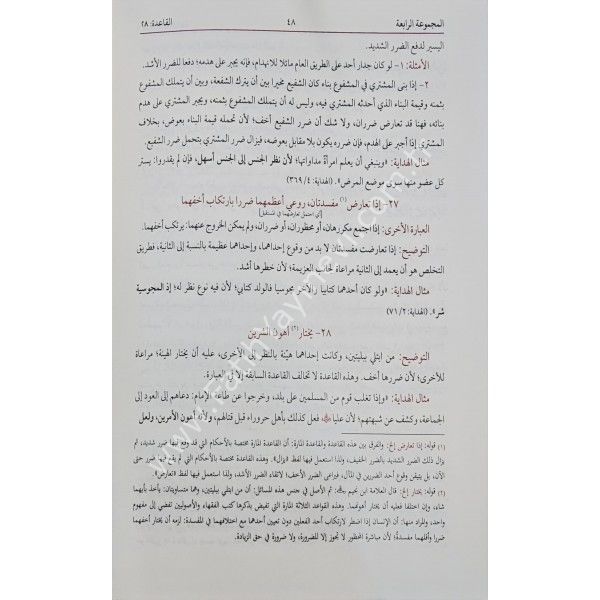 المجموعة الرابعة ٤٨ القاعدة: ٢٨
اليسير لدفع الضرر الشديد.
الأمثلة: ١- لو كان جدار أحد على الطريق العام مائلا للانهدام، فإنه يجبر على هدمه؛ دفعا للضرر الأشد.
٢- إذا بنى المشتري في المشفوع بناء كان الشفيع مخيرا بين أن يترك الشفعة، وبين أن يتملك المشفوع
بثمنه وقيمة البناء الذي أحدثه المشتري فيه، وليس له أن يتملك المشفوع بثمنه، ويجبر المشتري على هدم
بنائه، فهنا قد تعارض ضرران، ولا شك أن ضرر الشفيع أخف؛ لأن تحمله قيمة البناء بعوض، بخلاف
المشتري إذا أجبر على الهدم، فإن ضرره يكون بلا مقابل بعوضه، فيزال ضرر المشتري بتحمل ضرر الشفيع.
مثال الهداية: «وينبغي أن يعلم امرأة مداواتها؛ لأن نظر الجنس إلى الجنس أسهل، فإن لم يقدروا: يستر
كل عضو منها سوى موضع المرض». (الهداية: ٤/ ٣٦٩)
٢٧- إذا تعارض(١) مفسدتان، روعي أعظمهما ضررا بارتكاب أخفهما
العبارة الأخرى: إذا اجتمع مكروهان، أو محظوران، أو ضرران، ولم يمكن الخروج عنهما: يرتكب أخفهما.
التوضيح: إذا تعارضت مفسدتان لا بد من وقوع إحداهما، وإحداهما عظيمة بالنسبة إلى الثانية، فطريق
التخلص هو أن يعمد إلى الثانية مراعاة لجانب العزيمة؛ لأن خطرها أشد.
مثال الهداية: «ولو كان أحدهما كتابيا والآخر مجوسيا فالولد كتابي؛ لأن فيه نوع نظر له؛ إذ المجوسية
شر». (الهداية: ٢/ ٧١)
٢٨- يختار(٢) أهون الشرين
التوضيح: من ابتلي ببليتين، وكانت إحداهما هيّنة بالنظر إلى الأخرى، عليه أن يختار الهينة؛ مراعاة
للأخرى؛ لأن ضررها أخف. وهذه القاعدة لا تخالف القاعدة السابقة إلا في العبارة.
مثال الهداية: «وإذا تغلب قوم من المسلمين على بلد، وخرجوا عن طاعة الإمام: دعاهم إلى العود إلى
الجماعة، وكشف عن شبهتهم؛ لأن عليا فعل كذلك بأهل حروراء قبل قتالهم، ولأنه أهون الأمرين، ولعل
(١) قوله: إذا تعارض إلخ: والفرق بين هذه القاعدة والقاعدة المارة: أن القاعدة المارة مختصة بالأحكام التي قد وقع فيها ضرر شديد، ثم
يزال ذلك الضرر الشديد بالضرر الخفيف، ولذا استعمل فيها لفظ «يزال». وهذه القاعدة مختصة بالأحكام التي لم يقع فيها ضرر حتى
الآن، بل يتيقن وقوع أحد الضررين في المآل، فيراعى الضرر الأخف؛ لاتقاء الضرر الأشد، ولذا استعمل فيها لفظ «تعارض».
(٢) قوله: يختار إلخ: قال العلامة ابن نجيم: ثم الأصل في جنس هذه المسائل: أن من ابتلي ببليتين، وهما متساويتان: يأخذ بأيهما
شاء، وإن اختلفا فعليه أن يختار أهونهما. وهذه القواعد الثلاثة المارة التي تفيض بذكرها كتب الفقهاء والأصوليين تفضي إلى مفهوم
واحد، والمراد منها: أن الإنسان إذا اضطر لارتكاب أحد الفعلين دون تعيين أحدهما مع اختلافهما في المفسدة: لزمه أن يختار أخفهما
ضررا وأقلهما مفسدة؛ لأن مباشرة المحظور لا تجوز إلا للضرورة، ولا ضرورة في حق الزيادة.